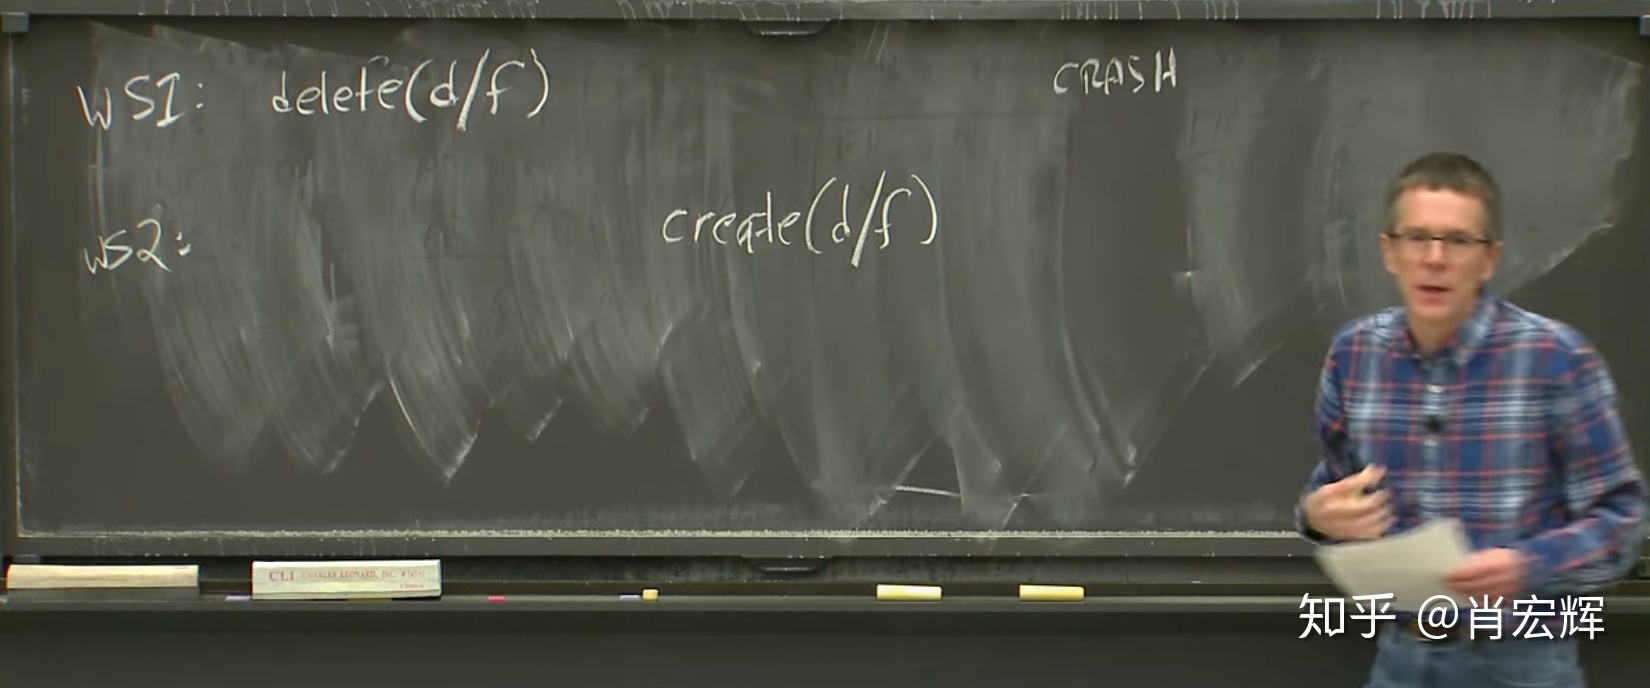 WS1: delete(d/f) CRASH
WS2: create(d/f)
CLI CHARLES LEONARD, INC.
知乎 @肖宏辉